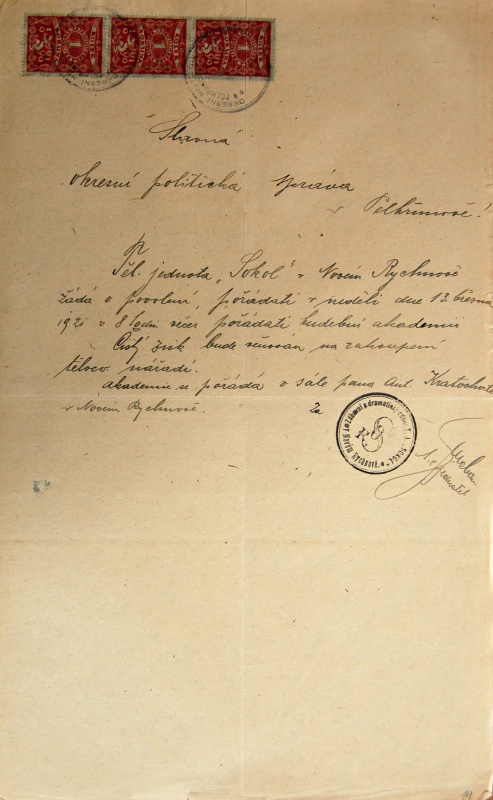 1 1 1
Slavná
okresní politická správa
v Pelhřimově!
Těl. jednota „Sokol" v Novém Rychnově
žádá o povolení, pořádati v neděli dne 13. března
1921 v 8 hodin večer pořádati hudební akademii
Čistý zisk bude věnován na zakoupení
tělocv. nářadí.
Akademie se pořádá v sále pana Ant. Kratochvíla
v Novém Rychnově.
Za
Zábavní a dramatický T. J. Sokol Nový Rychnově.
jednatel
19